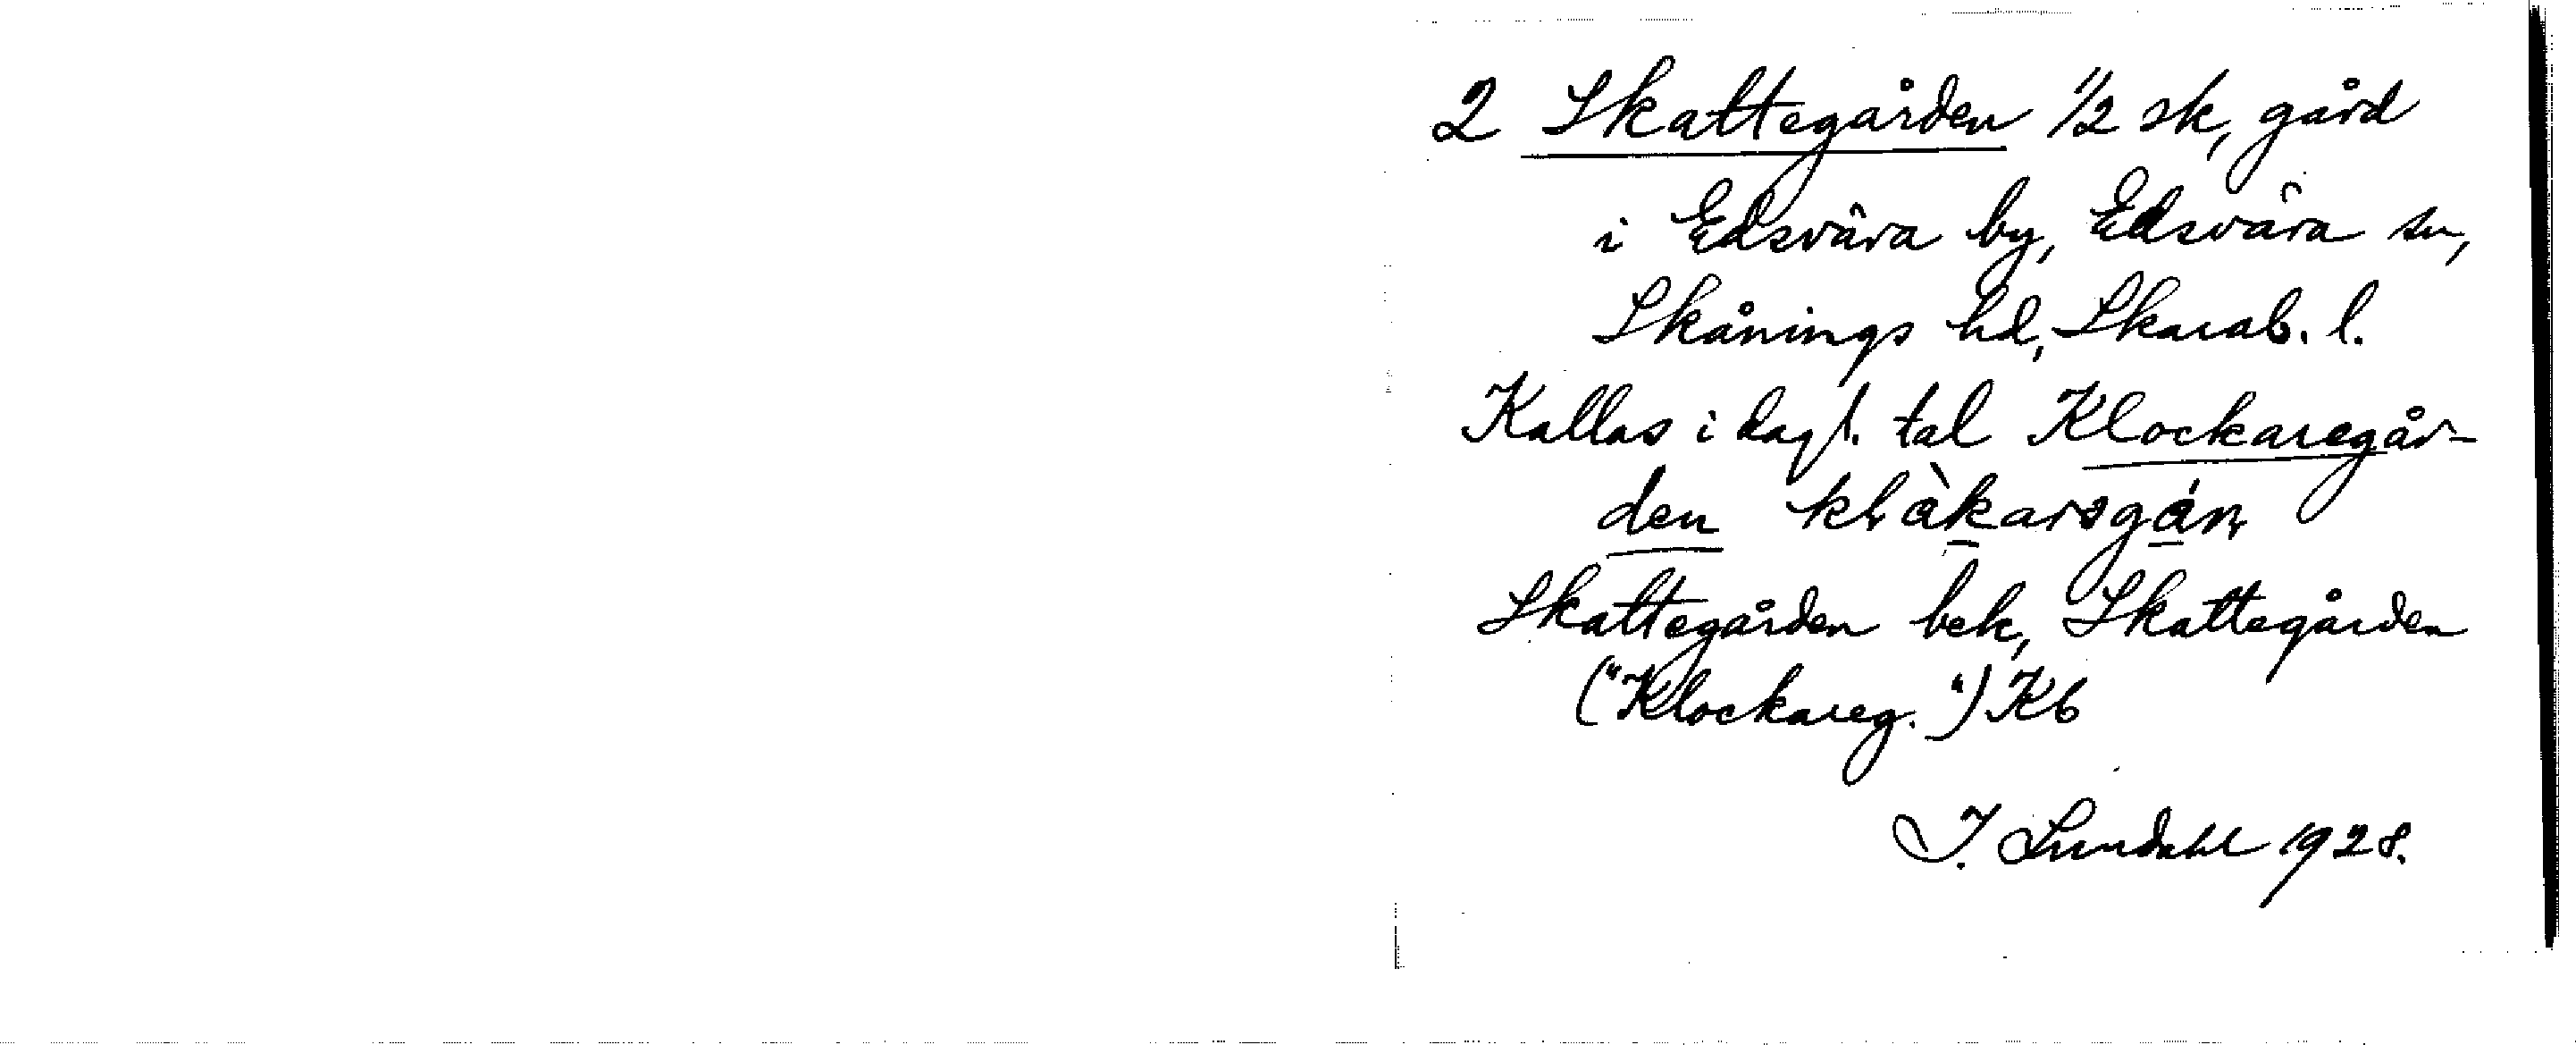 2 Skattegården 1/2 sk, gård
i Edsvära by, Edsvära sn,
Skånings hd, Skarab. l.
Kallas i dagl. tal Klockaregår-
den
Skattegården bek, Skattegården
("Klockareg.") Kb
I. Lundahl 1928.